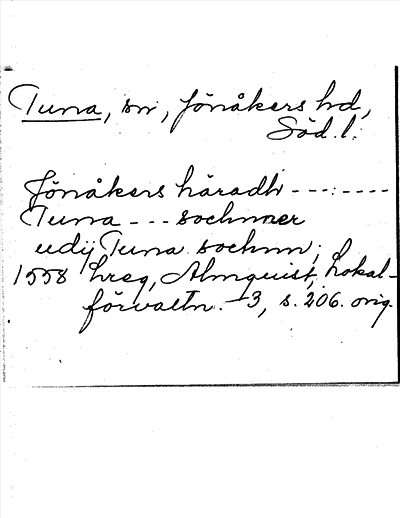 Tuna, sn, Jönåkers hd,
Söd. l.
Jönåkers häradh ---:----
Tuna --- sochnner
udij Tuna sochnn;
1558 hreg, Almquist, Lokal-
förvaltn. 3, s. 206. orig.